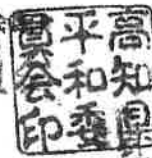 高知県
平和委
員会印